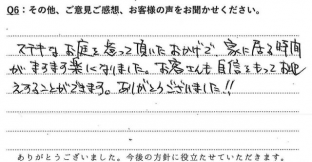 Q6：その他、ご意見ご感想、お客様の声をお聞かせください。
ステキなお庭を造って頂いたおかげで 家に居る時間
がますます楽になりました。お客さんも自信をもってお迎
えすることができます。ありがとうございました!!
ありがとうございました。今後の方針に役立たせていただきます。